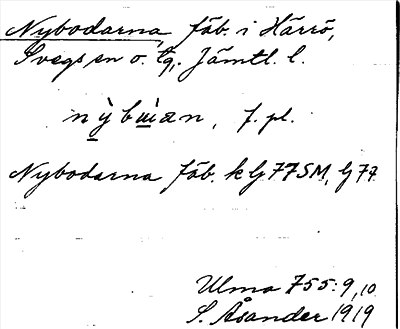 Nybodarna, fäb. i Härrö,
Svegs sn o. tg, Jämtl. l.
nỳbẁan, f. pl.
Nybodarna fäb. k Gj 77 SM, Gj 77
Ulma 755:9,10
S. Åsander 1919